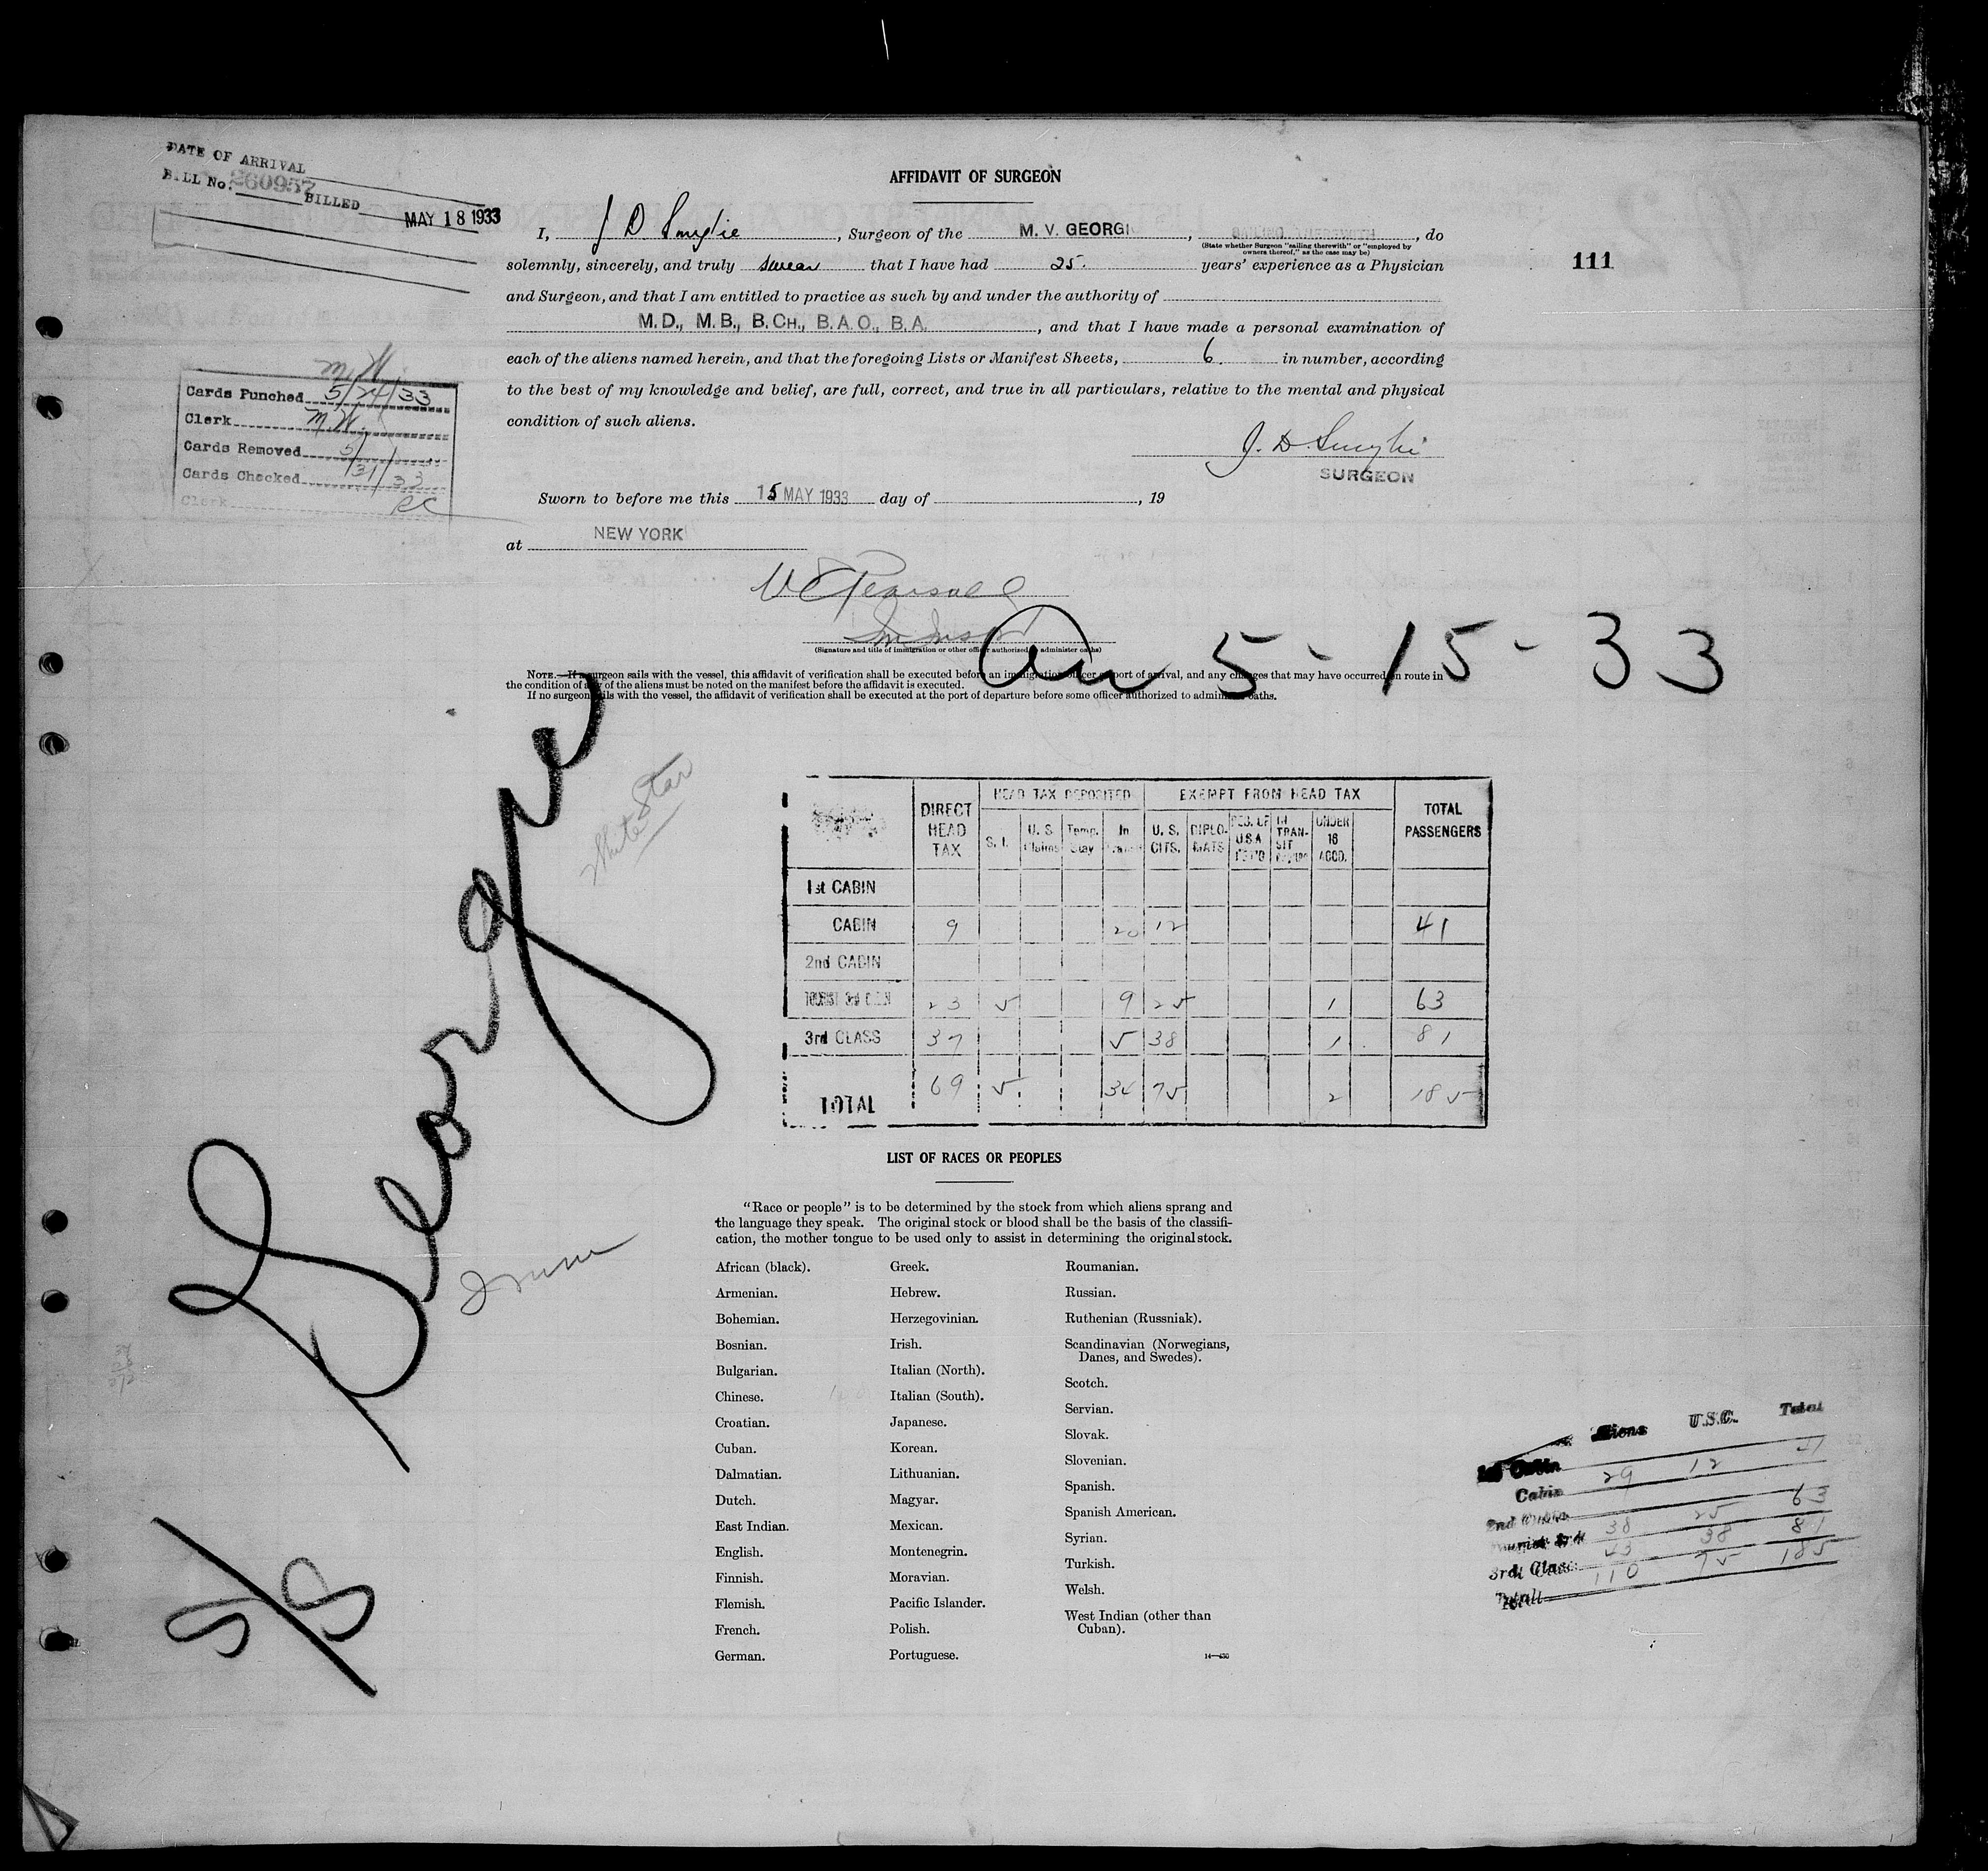 DATE OF ARRIVAL
BILL No. 260957
BILLED MAY 18 1933
AFFIDAVIT OF SURGEON
111
I, J D , Surgeon of the M. V. GEORGI , SAILING THEREWITH , do
(State whether Surgeon "sailing therewith" or "employed by
owners thereof," as the case may be)
solemnly, sincerely, and truly swear that I have had 25. years' experience as a Physician
and Surgeon, and that I am entitled to practice as such by and under the authority of
M.D., M.B., B.CH., B.A.O., B.A. , and that I have made a personal examination of
each of the aliens named herein, and that the foregoing Lists or Manifest Sheets, 6. in number, according
to the best of my knowledge and belief, are full, correct, and true in all particulars, relative to the mental and physical
condition of such aliens.
J. D.
SURGEON
M.W.
Cards Punched 5/24/33
Clerk M.W.
Cards Removed 5/
Cards Checked 31/33
Clerk
Sworn to before me this 15 MAY 1933 day of , 19
at NEW YORK
W C Pearsall
Im Insp
(Signature and title of immigration or other officer authorized to administer oaths)
Arr 5-15-33
NOTE.—If a surgeon sails with the vessel, this affidavit of verification shall be executed before an immigration officer at port of arrival, and any changes that may have occurred en route in
the condition of any of the aliens must be noted on the manifest before the affidavit is executed.
If no surgeon sails with the vessel, the affidavit of verification shall be executed at the port of departure before some officer authorized to administer oaths.
Georgic
White Star
5/15
DIRECT HEAD TAX
HEAD TAX DEPOSITED
EXEMPT FROM HEAD TAX
TOTAL PASSENGERS
S. I. U. S. Claims Temp. Stay In Transit U. S. CITS. DIPLO-MATS RES. OF U.S.A. RET'D IN TRAN-SIT UNDER 16 ACCD.
1st CABIN
CABIN 9 20 12 41
2nd CABIN
TOURIST 3rd CABIN 23 5 9 25 1 63
3rd CLASS 37 5 38 1 81
TOTAL 69 5 34 75 2 185
LIST OF RACES OR PEOPLES
"Race or people" is to be determined by the stock from which aliens sprang and
the language they speak. The original stock or blood shall be the basis of the classifi-
cation, the mother tongue to be used only to assist in determining the original stock.
African (black).
Armenian.
Bohemian.
Bosnian.
Bulgarian.
Chinese.
Croatian.
Cuban.
Dalmatian.
Dutch.
East Indian.
English.
Finnish.
Flemish.
French.
German.
Greek.
Hebrew.
Herzegovinian.
Irish.
Italian (North).
Italian (South).
Japanese.
Korean.
Lithuanian.
Magyar.
Mexican.
Montenegrin.
Moravian.
Pacific Islander.
Polish.
Portuguese.
Roumanian.
Russian.
Ruthenian (Russniak).
Scandinavian (Norwegians,
Danes, and Swedes).
Scotch.
Servian.
Slovak.
Slovenian.
Spanish.
Spanish American.
Syrian.
Turkish.
Welsh.
West Indian (other than
Cuban).
Aliens U.S.C. Total
1st Cabin
Cabin 29 12 41
2nd Cabin
Tourist 3rd 38 25 63
3rd Class 43 38 81
Total 110 75 185